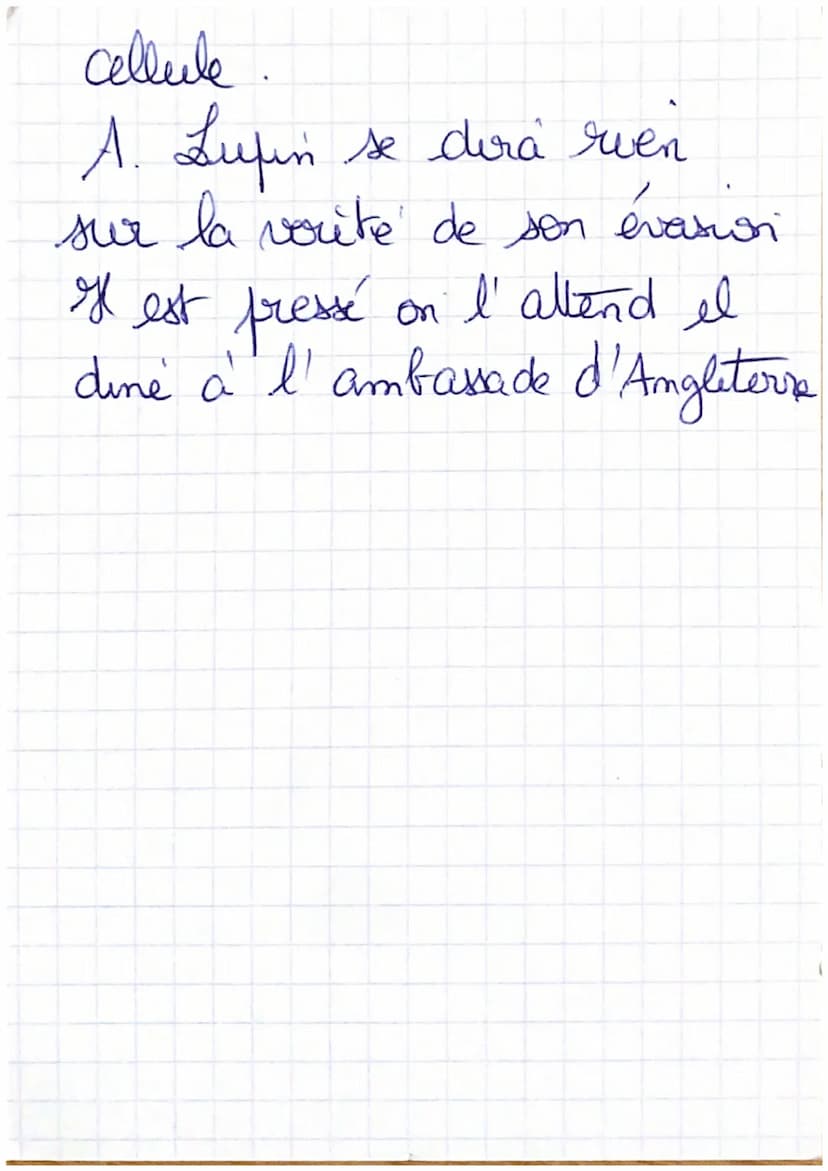 cellule.
A. Lupin se dira rien
sur la vérité de son évasion
Il est pressé on l'attend il
dine à l'ambassade d'Angleterre